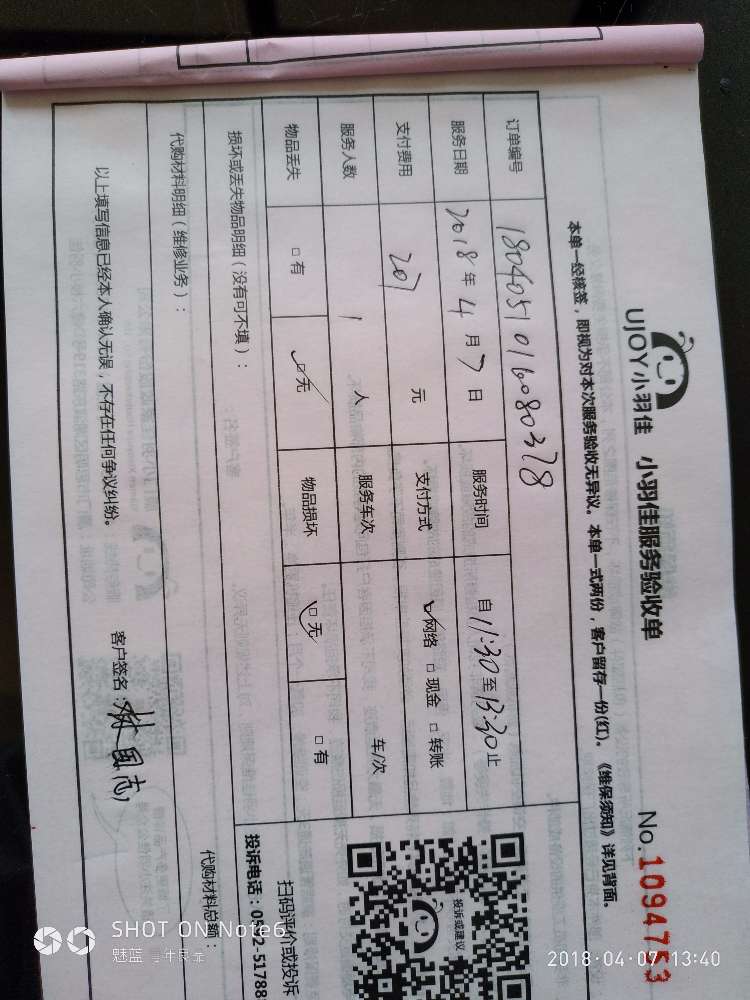 UJOY小羽佳 小羽佳服务验收单 No.1094753
本单一经核签，即视为对本次服务验收无异议。本单一式两份，客户留存一份(红)。《维保须知》详见背面。
订单编号 1804051016080378
服务日期 2018年4月7日 服务时间 自11:30至13:30止
支付费用 207元 支付方式 网络 现金 转账
服务人数 1人 服务车次 车/次
物品丢失 有 无 物品损坏 无 有
损坏或丢失物品明细（没有可不填）：
代购材料明细（维修业务）： 代购材料总额：
以上填写信息已经本人确认无误，不存在任何争议纠纷。
客户签名：林国志
投诉或建议
扫码评价或投诉
投诉电话：0592-51788
SHOT ON Note6
魅蓝
2018-04-07 13:40